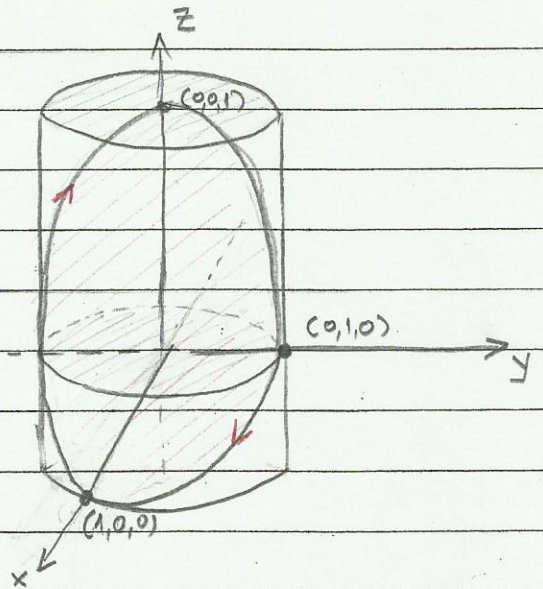 z
(0,0,1)
(0,1,0)
y
(1,0,0)
x